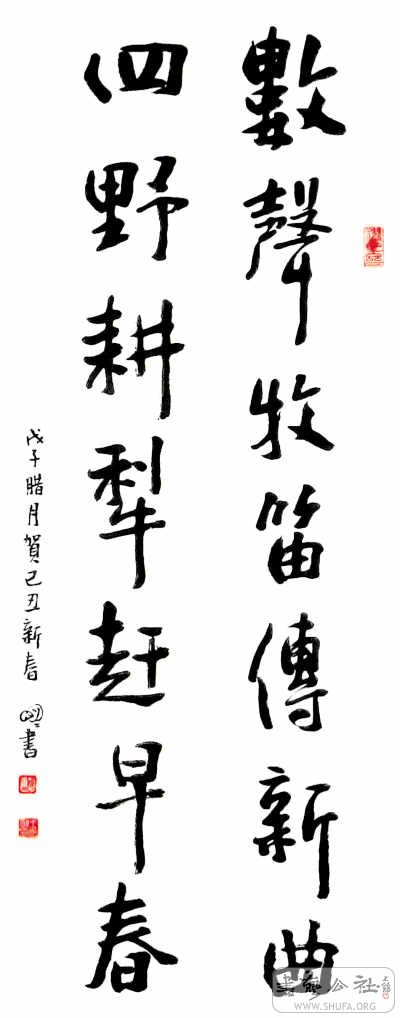 數聲牧笛傳新曲
四野耕犁趕早春
戊子腊月賀己丑新春
書
書艺公社
www.SHUFA.ORG